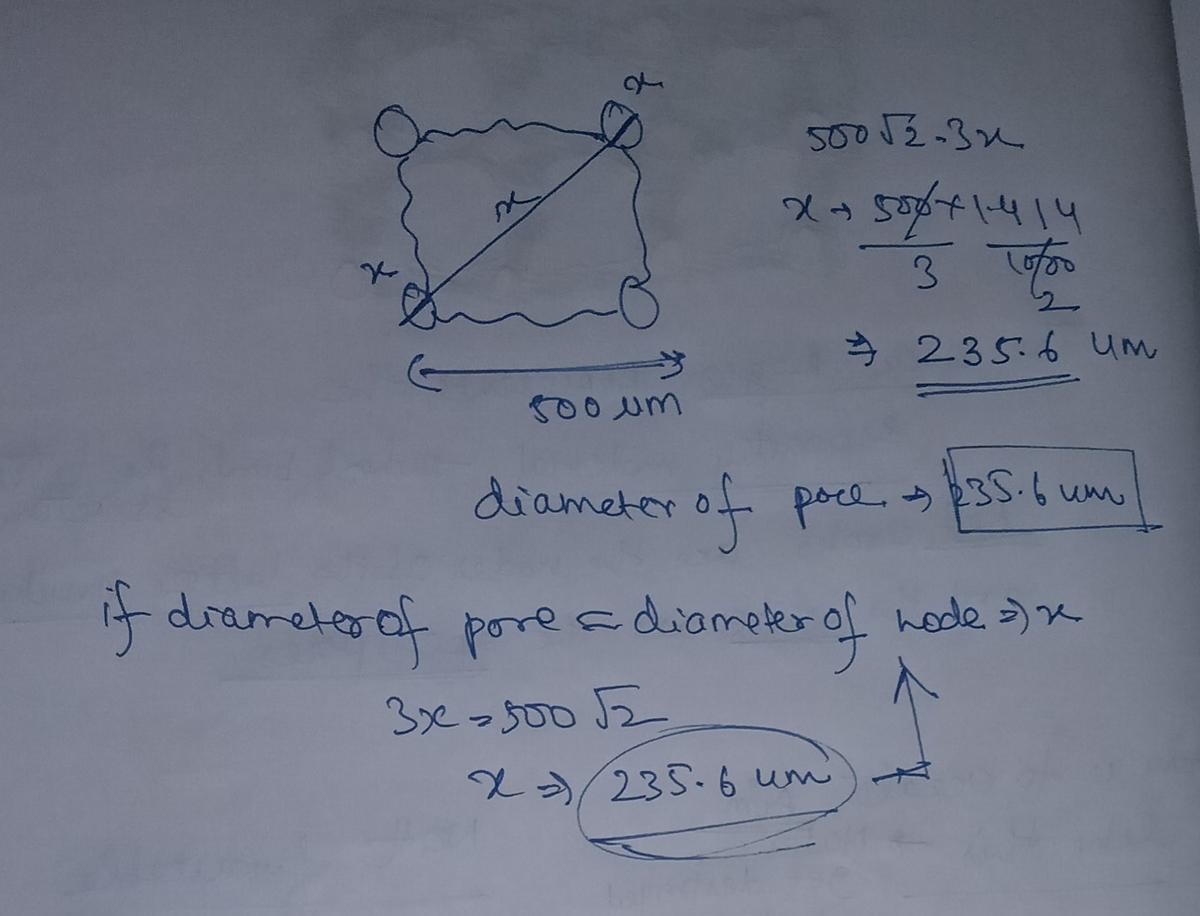 x
500√2 = 3x
x → 500 × 1414
3 1000
2
x
x
⇒ 235.6 um
500 um
diameter of pore → 235.6 um
if diameter of pore = diameter of node ⇒ x
3x = 500√2
x ⇒ 235.6 um